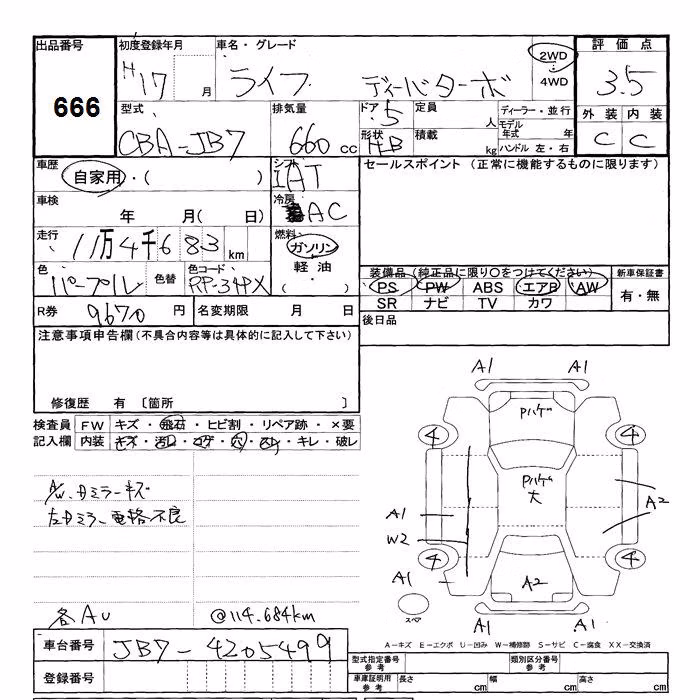 出品番号 初度登録年月 車名・グレード 2WD 評価点
666 H17 月 ライフ ディーバターボ 4WD 3.5
型式 排気量 ドア 定員 ディーラー・並行 外装 内装
CBA-JB7 660 cc 5 人 モデル年式 年 C C
形状 HB 積載 kg ハンドル 左・右
車歴 シフト セールスポイント (正常に機能するものに限ります)
自家用・( ) IAT
車検 冷房
年 月( 日) AC
走行 燃料
11万4千683 km ガソリン
色 色替 色コード 軽油 装備品 (純正品に限り〇をつけてください) 新車保証書
パープル RP-34PX ( ・ ) PS PW ABS エアB AW 有・無
SR ナビ TV カワ
R券 9670 円 名変期限 月 日 後日品
注意事項申告欄(不具合内容等は具体的に記入して下さい)
修復歴 有 〔箇所 〕
検査員 FW キズ・飛石・ヒビ割・リペア跡・×要
記入欄 内装 キズ・汚レ・コゲ・穴・スレ・キレ・破レ
A/W、Dミラーキズ
左Dミラー電格不良
各AU @114.684km
A1 A1
Pハゲ
4 4
Pハゲ
大
A2
A1
W2
4 4
A1 A2
スペア
A1 A1
A-キズ E-エクボ U-凹み W-補修跡 S-サビ C-腐食 XX-交換済
車台番号 JB7-4205499
型式指定番号 参考 類別区分番号 参考
登録番号
車庫証明用 参考 長さ cm 幅 cm 高さ cm